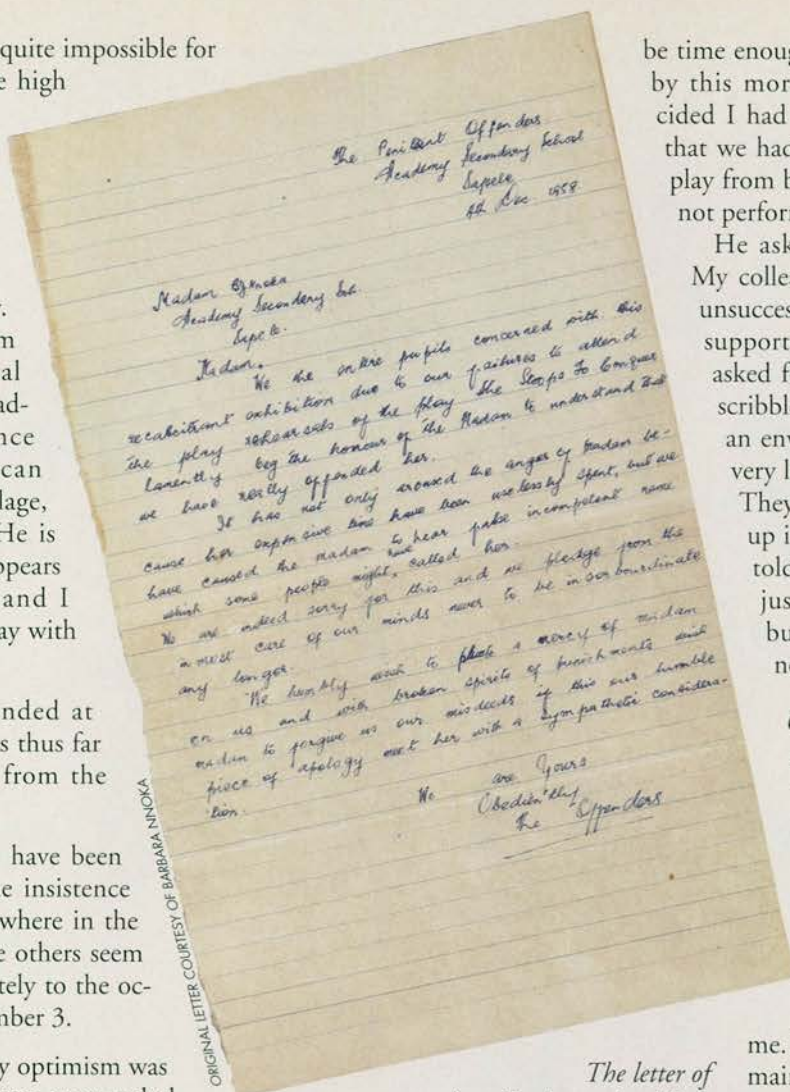 quite impossible for
e high
y.
m
al
ad-
nce
can
lage,
He is
ppears
and I
ay with
nded at
s thus far
from the
have been
e insistence
where in the
e others seem
tely to the oc-
nber 3.
y optimism was
The Penitent Offenders
Academy Secondary School
Sapele
4th Dec 1958
Madam
Academy Secondary Sch.
Sapele.
Madam,
We the entire pupils concerned with this
recalcitrant exhibition due to our failures to attend
the play rehearsals of the play She Stoops To Conquer
lamently beg the honour of the Madam to understand that
we have really offended her.
It has not only aroused the anger of Madam be-
cause her expensive time have been uselessly spent, but we
have caused the madam to hear false incompetent name
which some people might have called her.
We are indeed sorry for this and we pledge from the
inmost care of our minds never to be insorbourdinate
any longer.
We humbly wish to a mercy of madam
on us and with broken spirits of punishments wish
madam to forgive us our misdeeds if this our humble
piece of apology meet her with a sympathetic considera-
tion.
We are Yours
Obediently
The Offenders
ORIGINAL LETTER COURTESY OF BARBARA NNOKA
be time enoug
by this mor
cided I had
that we had
play from b
not perfor
He ask
My colle
unsucces
support
asked f
scribbl
an env
very l
They
up i
told
jus
bu
n
me.
The letter of
main